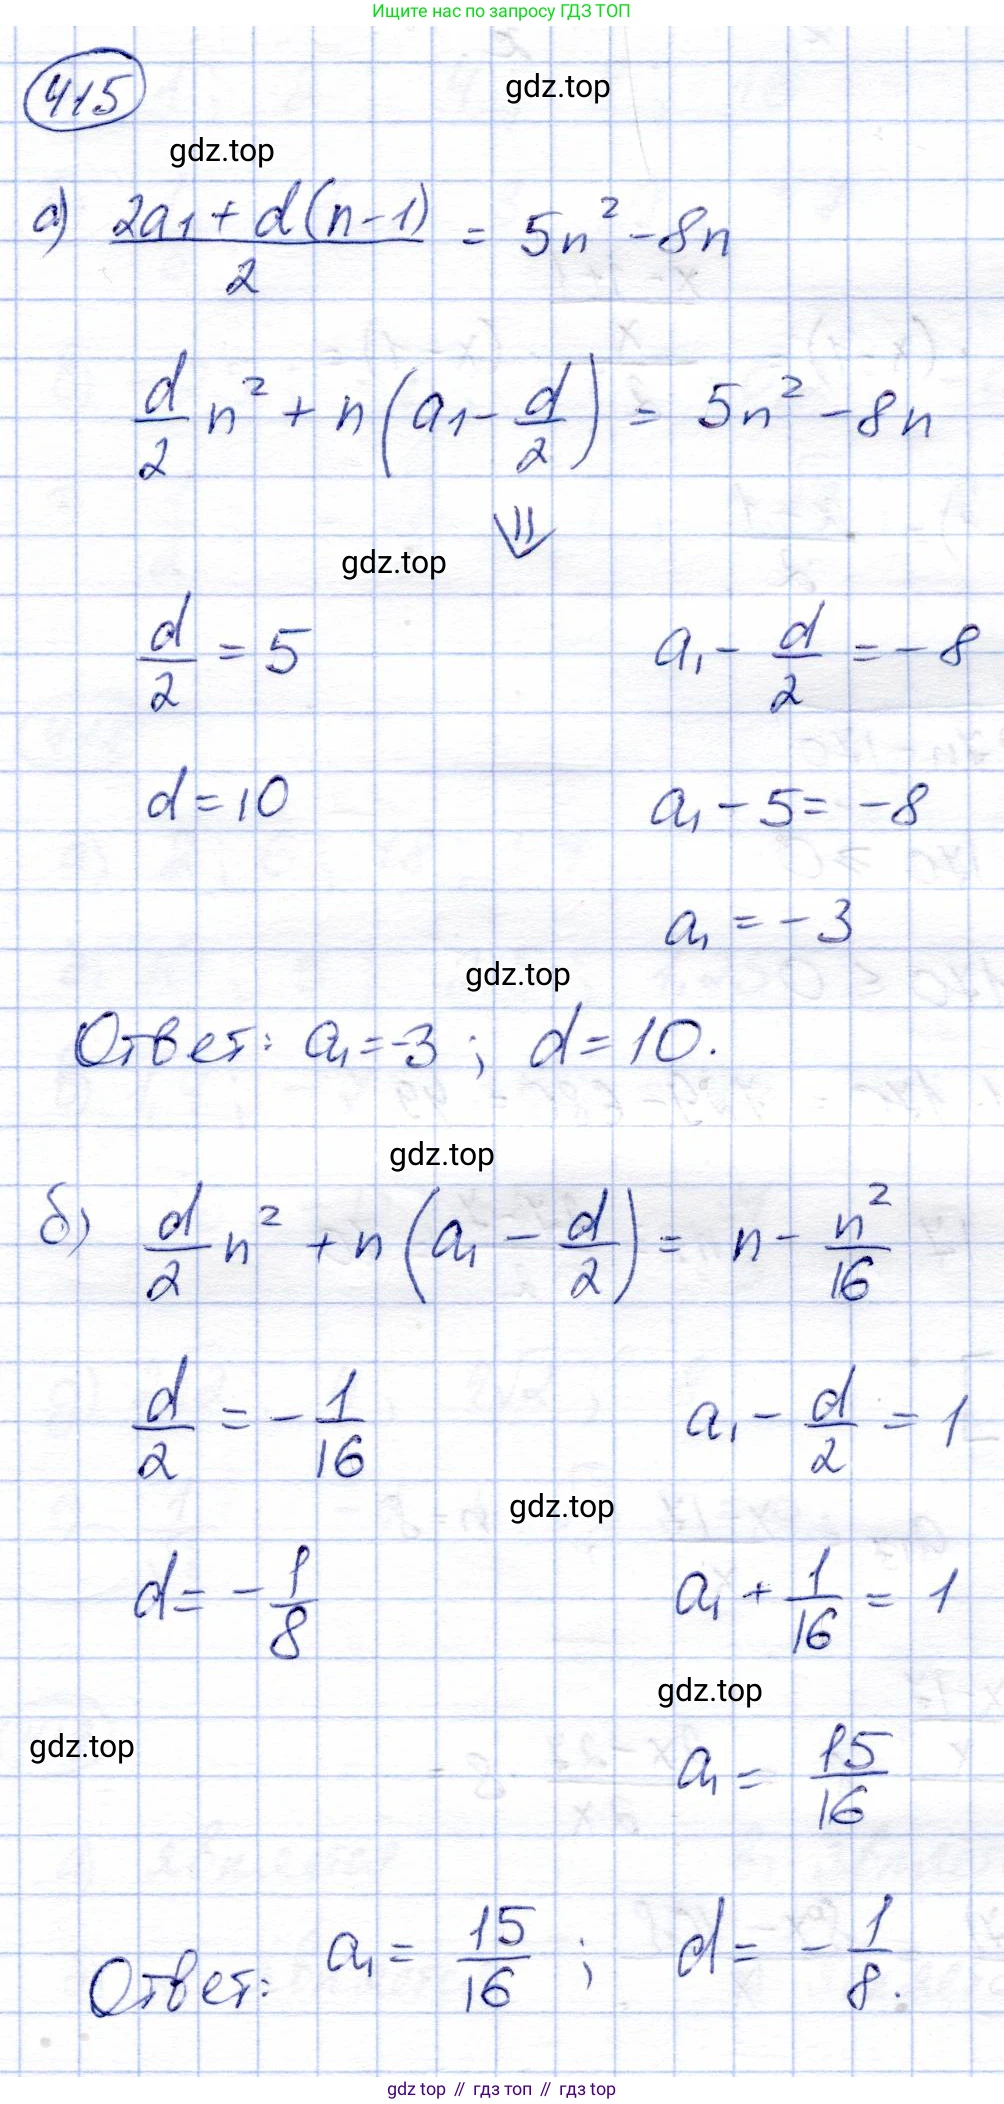 Ищите нас по запросу ГДЗ ТОП
415
gdz.top
gdz.top
а) (2a₁ + d(n-1))/2 = 5n² - 8n
d/2 n² + n(a₁ - d/2) = 5n² - 8n
⇓
gdz.top
d/2 = 5 a₁ - d/2 = -8
d = 10 a₁ - 5 = -8
a₁ = -3
gdz.top
Ответ: a₁ = -3 ; d = 10.
gdz.top
б) d/2 n² + n(a₁ - d/2) = n - n²/16
d/2 = -1/16 a₁ - d/2 = 1
gdz.top
d = -1/8 a₁ + 1/16 = 1
gdz.top
gdz.top
a₁ = 15/16
Ответ: a₁ = 15/16 ; d = -1/8.
gdz top // гдз топ // gdz top